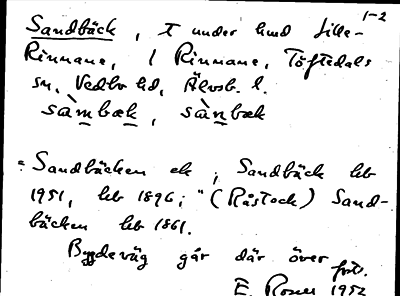 1-2
Sandbäck, t under hmd Lille-
Rinnane, l Rinnane, Töftedals
sn, Vedbo hd, Älvsb. l.
sàmbæk, sànbæk
"Sandbäcken ek; Sandbäck hb
1951, hb 1896; "(Råstock) Sand-
bäcken hb 1861.
Bygdeväg går där över
E. Rosell 1952